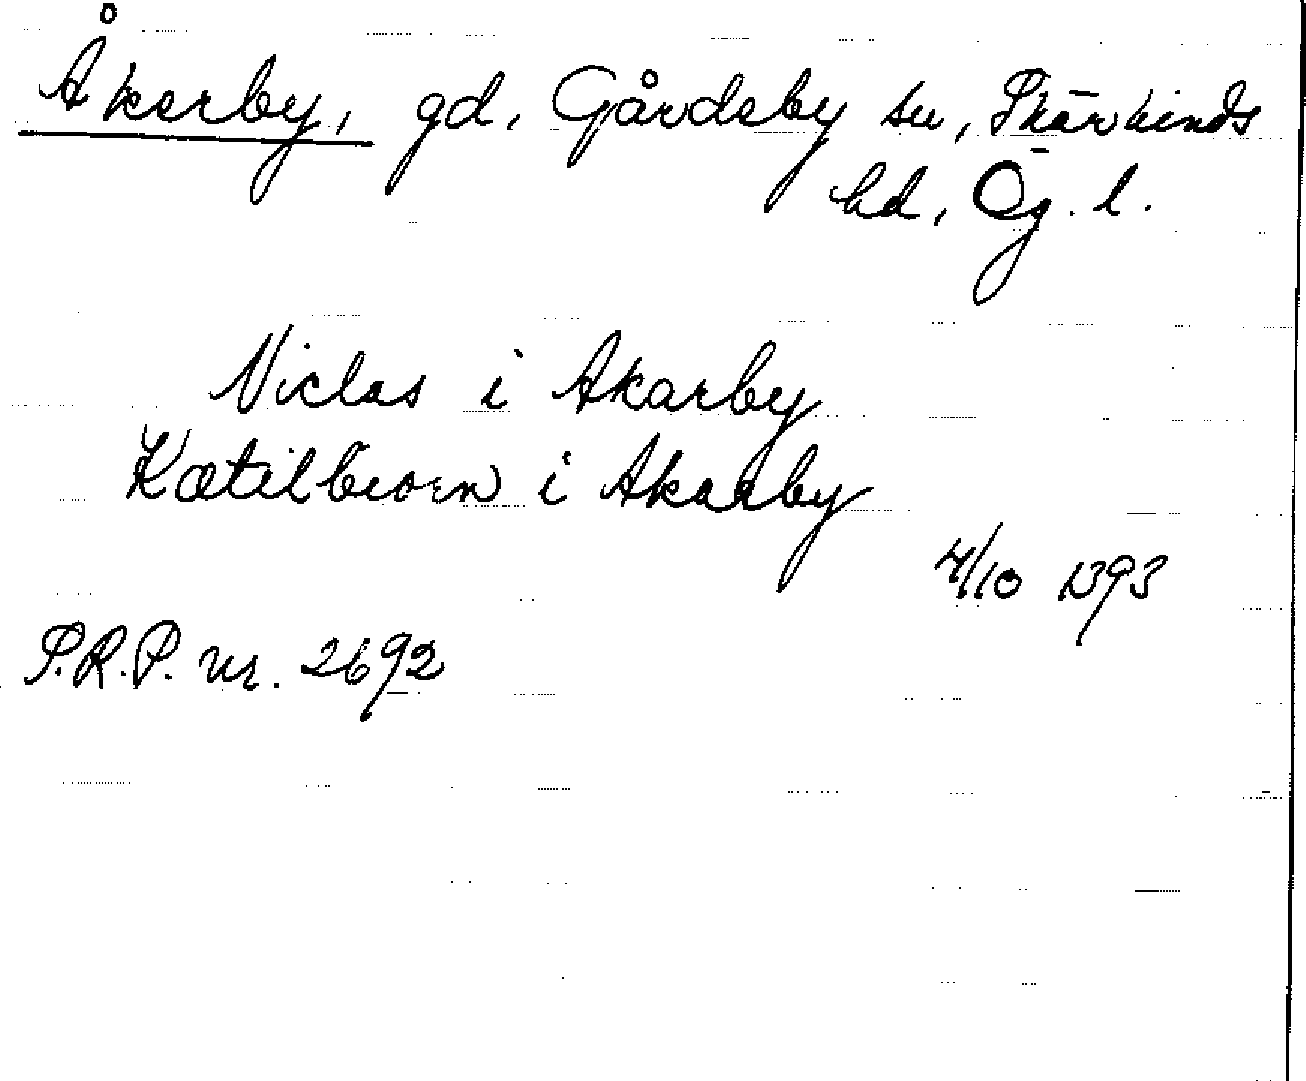 Åkerby, gd, Gårdeby sn, Skärkinds
hd, Ög. l.
Niclas i Akarby
Kætilbiorn i Akarby
4/10 1393
S.R.P. nr. 2692